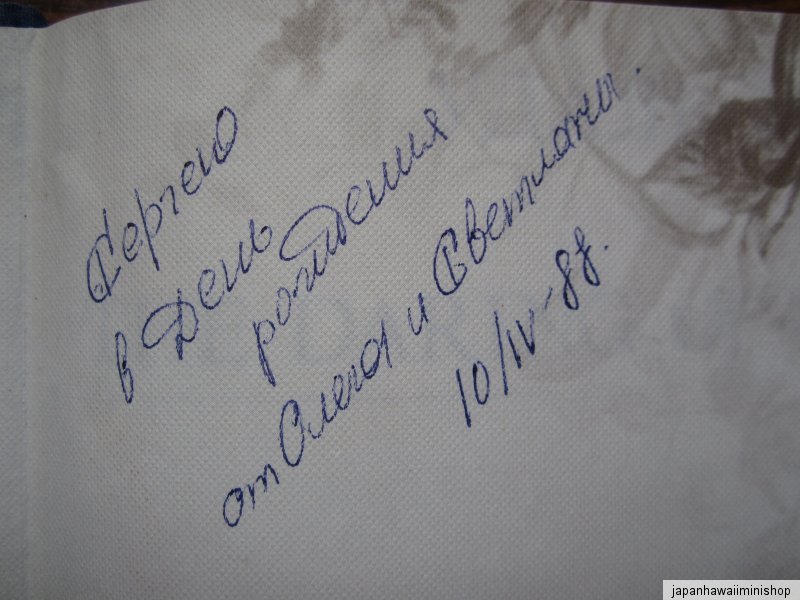 Сергею
в День
рождения
от Олега и Светланы.
10/IV-88г.
japanhawaiiminishop